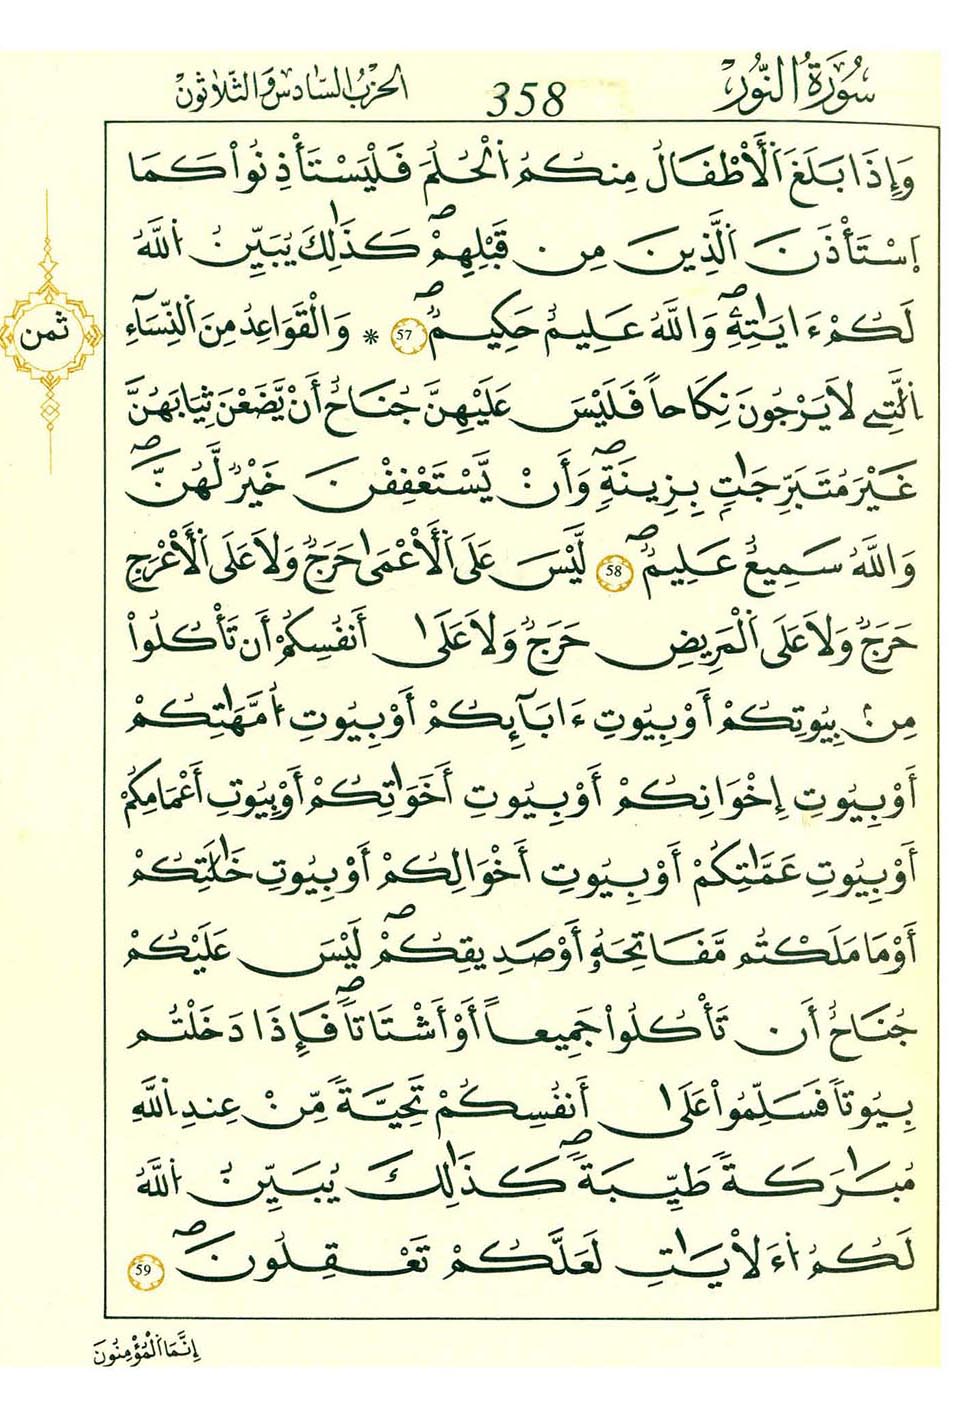 سُورَةُ النُّور 358 الحِزْبُ السَّادِسُ وَالثَّلَاثُونْ
وَإِذَا بَلَغَ اَ۬لْأَطْفَالُ مِنكُمُ اُ۬لْحُلُمَ فَلْيَسْتَأْذِنُواْ كَمَا
اَ۪سْتَأْذَنَ اَ۬لَّذِينَ مِن قَبْلِهِمْۖ كَذَٰلِكَ يُبَيِّنُ اُ۬للَّهُ
لَكُمْ ءَايَٰتِهِۦۖ وَاللَّهُ عَلِيمٌ حَكِيمٌۖ 57 * وَالْقَوَٰعِدُ مِنَ اَ۬لنِّسَآءِ
ثمن
اِ۬لَّٰتِے لَا يَرْجُونَ نِكَاحاٗ فَلَيْسَ عَلَيْهِنَّ جُنَاحٌ أَنْ يَّضَعْنَ ثِيَابَهُنَّ
غَيْرَ مُتَبَرِّجَٰتِۢ بِزِينَةٖۖ وَأَنْ يَّسْتَعْفِفْنَ خَيْرٞ لَّهُنَّۖ
وَاللَّهُ سَمِيعٌ عَلِيمٞۖ 58 لَّيْسَ عَلَى اَ۬لْأَعْمَىٰ حَرَجٞ وَلَا عَلَى اَ۬لْأَعْرَجِ
حَرَجٞ وَلَا عَلَى اَ۬لْمَرِيضِ حَرَجٞ وَلَا عَلَىٰ أَنفُسِكُمْ أَن تَأْكُلُواْ
مِنۢ بِيُوتِكُمْ أَوْ بِيُوتِ ءَابَآئِكُمْ أَوْ بِيُوتِ أُمَّهَٰتِكُمْ
أَوْ بِيُوتِ إِخْوَانِكُمْ أَوْ بِيُوتِ أَخَوَٰتِكُمْ أَوْ بِيُوتِ أَعْمَامِكُمْ
أَوْ بِيُوتِ عَمَّٰتِكُمْ أَوْ بِيُوتِ أَخْوَالِكُمْ أَوْ بِيُوتِ خَٰلَٰتِكُمْ
أَوْ مَا مَلَكْتُم مَّفَاتِحَهُۥ أَوْ صَدِيقِكُمْۖ لَيْسَ عَلَيْكُمْ
جُنَاحٌ أَن تَأْكُلُواْ جَمِيعاً أَوْ أَشْتَاتاٗۖ فَإِذَا دَخَلْتُم
بِيُوتاٗ فَسَلِّمُواْ عَلَىٰ أَنفُسِكُمْ تَحِيَّةٗ مِّنْ عِندِ اِ۬للَّهِ
مُبَٰرَكَةٗ طَيِّبَةٗۖ كَذَٰلِكَ يُبَيِّنُ اُ۬للَّهُ
لَكُمُ اُ۬ءَلْأيَٰتِ لَعَلَّكُمْ تَعْقِلُونَۖ 59
إِنَّمَا اَ۬لْمُؤْمِنُونَ